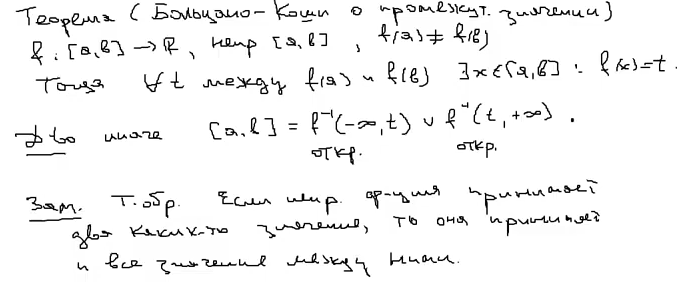 Теорема (Больцано-Коши о промежут. значении)
f: [a,b] → ℝ, непр [a,b], f(a) ≠ f(b)
Тогда ∀ t между f(a) и f(b) ∃ x ∈ [a,b] : f(x) = t.
Д-во иначе [a,b] = f⁻¹(-∞, t) ∪ f⁻¹(t, +∞).
откр. откр.
Зам. Т. обр. Если непр. ф-ция принимает
два каких-то значения, то она принимает
и все значения между ними.